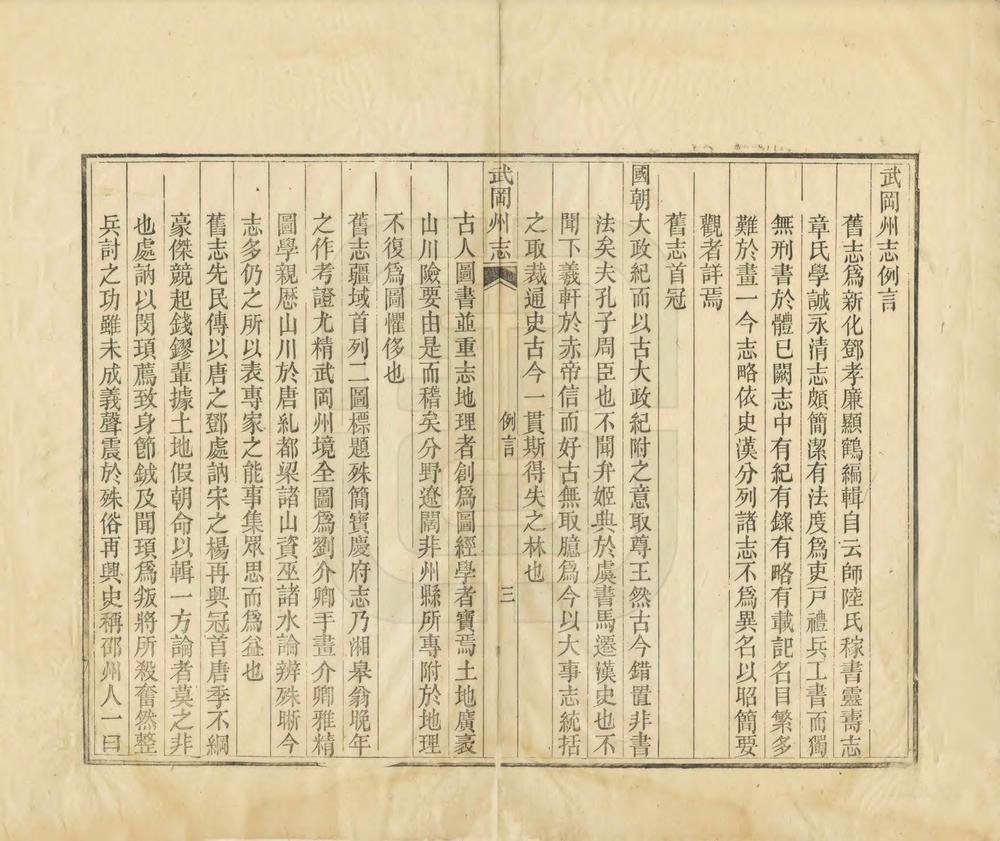 武岡州志例言
舊志爲新化鄧孝廉顯鶴編輯自云師陸氏稼書靈壽志
章氏學誠永清志頗簡潔有法度爲吏戸禮兵工書而獨
無刑書於體已闕志中有紀有錄有略有載記名目繁多
難於畫一今志略依史漢分列諸志不爲異名以昭簡要
觀者詳焉
舊志首冠
國朝大政紀而以古大政紀附之意取尊王然古今錯置非書
法矣夫孔子周臣也不聞弁姬典於虞書馬遷漢史也不
聞下羲軒於赤帝信而好古無取臆爲今以大事志統括
之取裁通史古今一貫斯得失之林也
武岡州志
例言
三
古人圖書並重志地理者創爲圖經學者寶焉土地廣袤
山川險要由是而稽矣分野遼闊非州縣所專附於地理
不復爲圖懼侈也
舊志疆域首列二圖標題殊簡寶慶府志乃湘皋翁晚年
之作考證尤精武岡州境全圖爲劉介卿手畫介卿雅精
圖學親歷山川於唐糺都梁諸山資巫諸水論辨殊晰今
志多仍之所以表專家之能事集眾思而爲益也
舊志先民傳以唐之鄧處訥宋之楊再興冠首唐季不綱
豪傑競起錢鏐輩據土地假朝命以輯一方論者莫之非
也處訥以閔頊薦致身節鉞及聞頊爲叛將所殺奮然整
兵討之功雖未成義聲震於殊俗再興史稱邵州人一曰